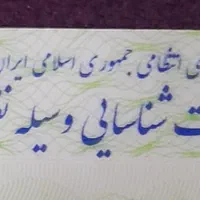 انتظامی جمهوری اسلامی ایران
شناسایی وسیله